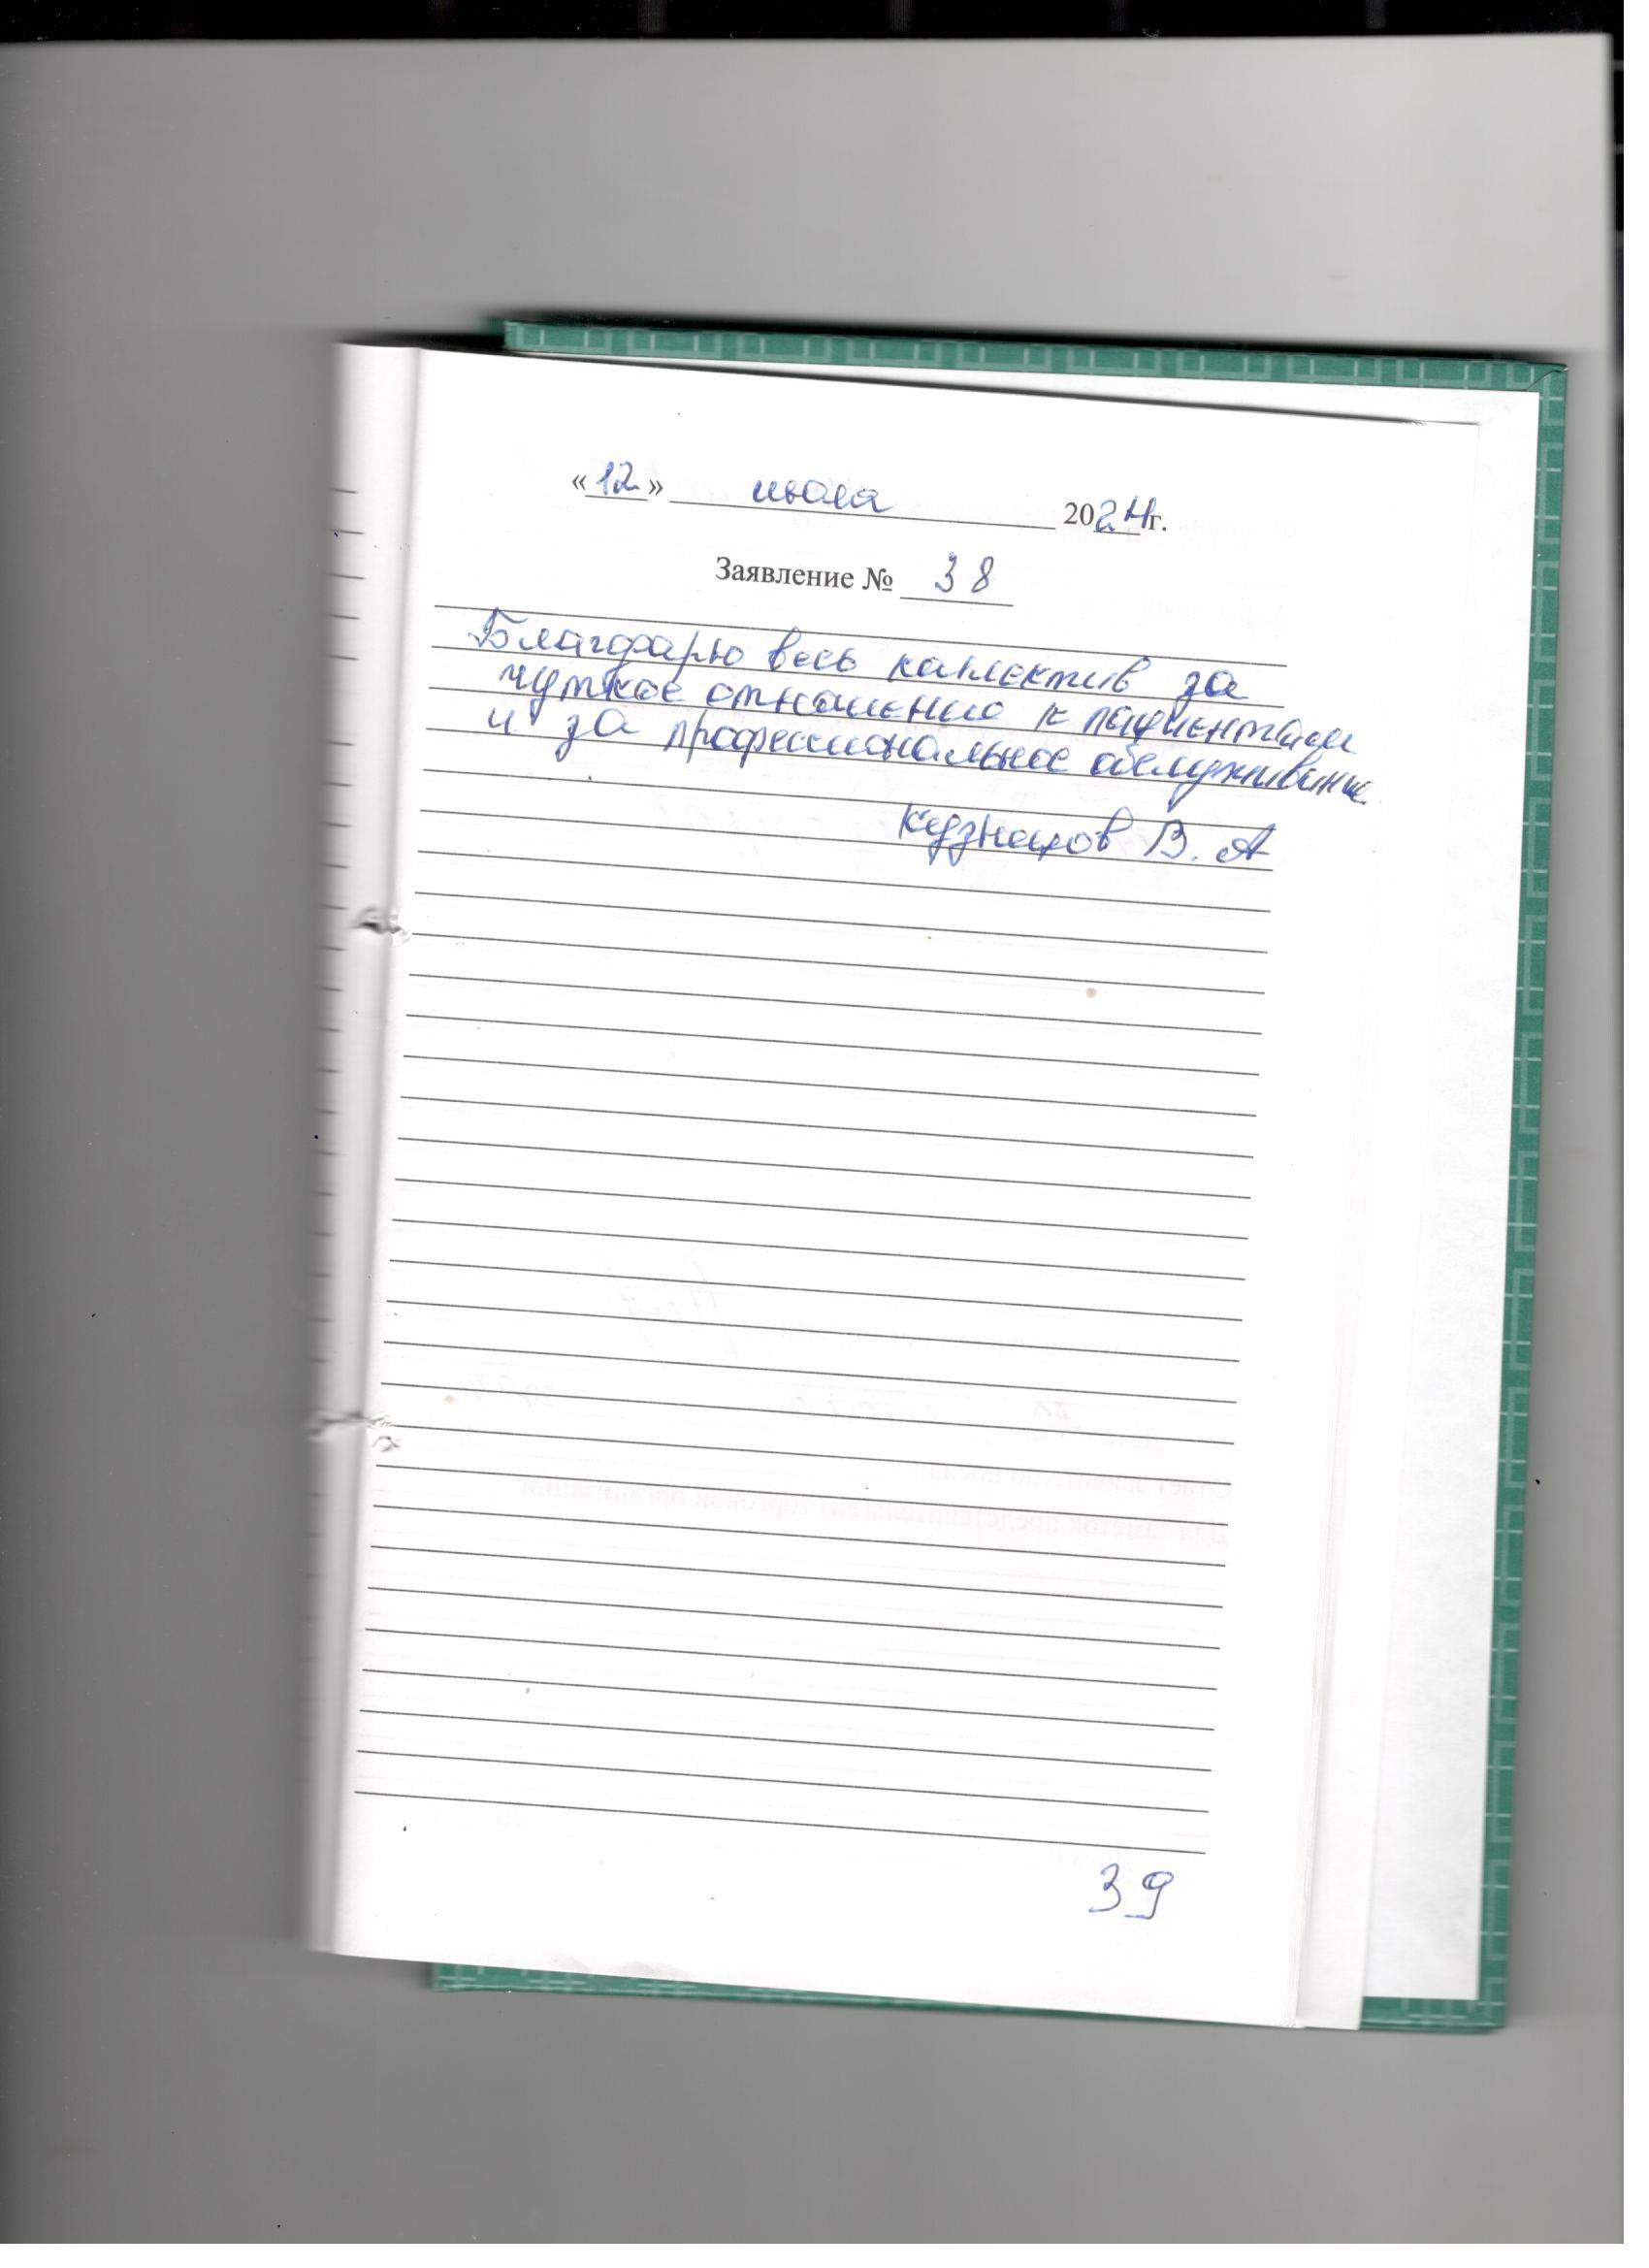 «12» июля 2024г.
Заявление № 38
Благодарю весь коллектив за
чуткое отношение к пациентам
и за профессиональное обслуживание
Кузнецов В. А
39